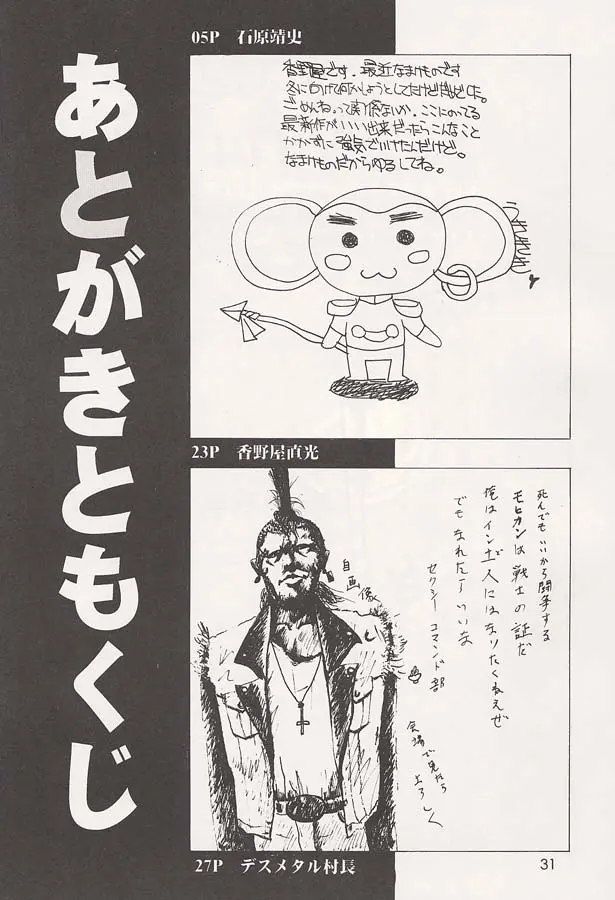 あとがきともくじ
05P 石原靖史
香野屋です．最近なまけものです
冬にむけて何かしようとしてたけどだめでした。
ごめんねって関係ないか．ここにのってる
最新作がいい出来だったらこんなこと
かかずに強気でいけたんだけど。
なまけものだからゆるしてね。
うききききっ
23P 香野屋直光
死んでもいいから闘争する
モヒカンは戦士の証だ
俺はインポ人にはなりたくねえぜ
でもなれたらいいな
セクシーコマンド部
自画像
会場で見たら
よろしく
27P デスメタル村長
31